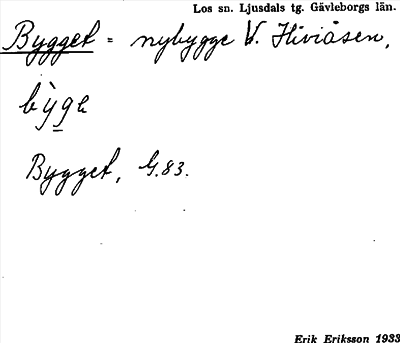 Los sn. Ljusdals tg. Gävleborgs län.
Bygget = nybygge V. Hiviåsen,
bỳ̱ge
Bygget, G.83.
Erik Eriksson 1933